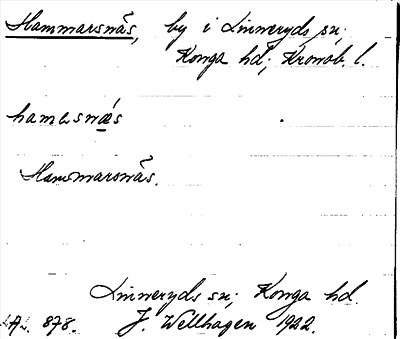 Hammarsnäs, by i Linneryds sn;
Konga hd; Kronob. l.
hamɐsnǽs
Hammarsnäs.
Linneryds sn; Konga hd.
A. 878. J. Wellhagen 1922.